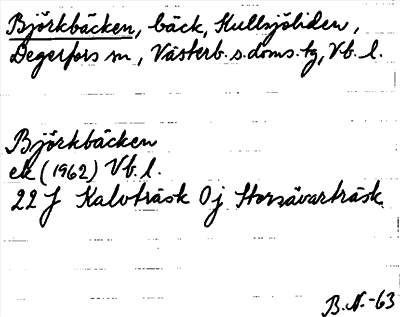 Björkbäcken, bäck, Kullsjöliden,
Degerfors sn, Västerb. s. doms. tg, Vb. l.
Björkbäcken
ek (1962) Vb. l.
22 J Kalvträsk 0j Storsävarträsk
B.N.-63